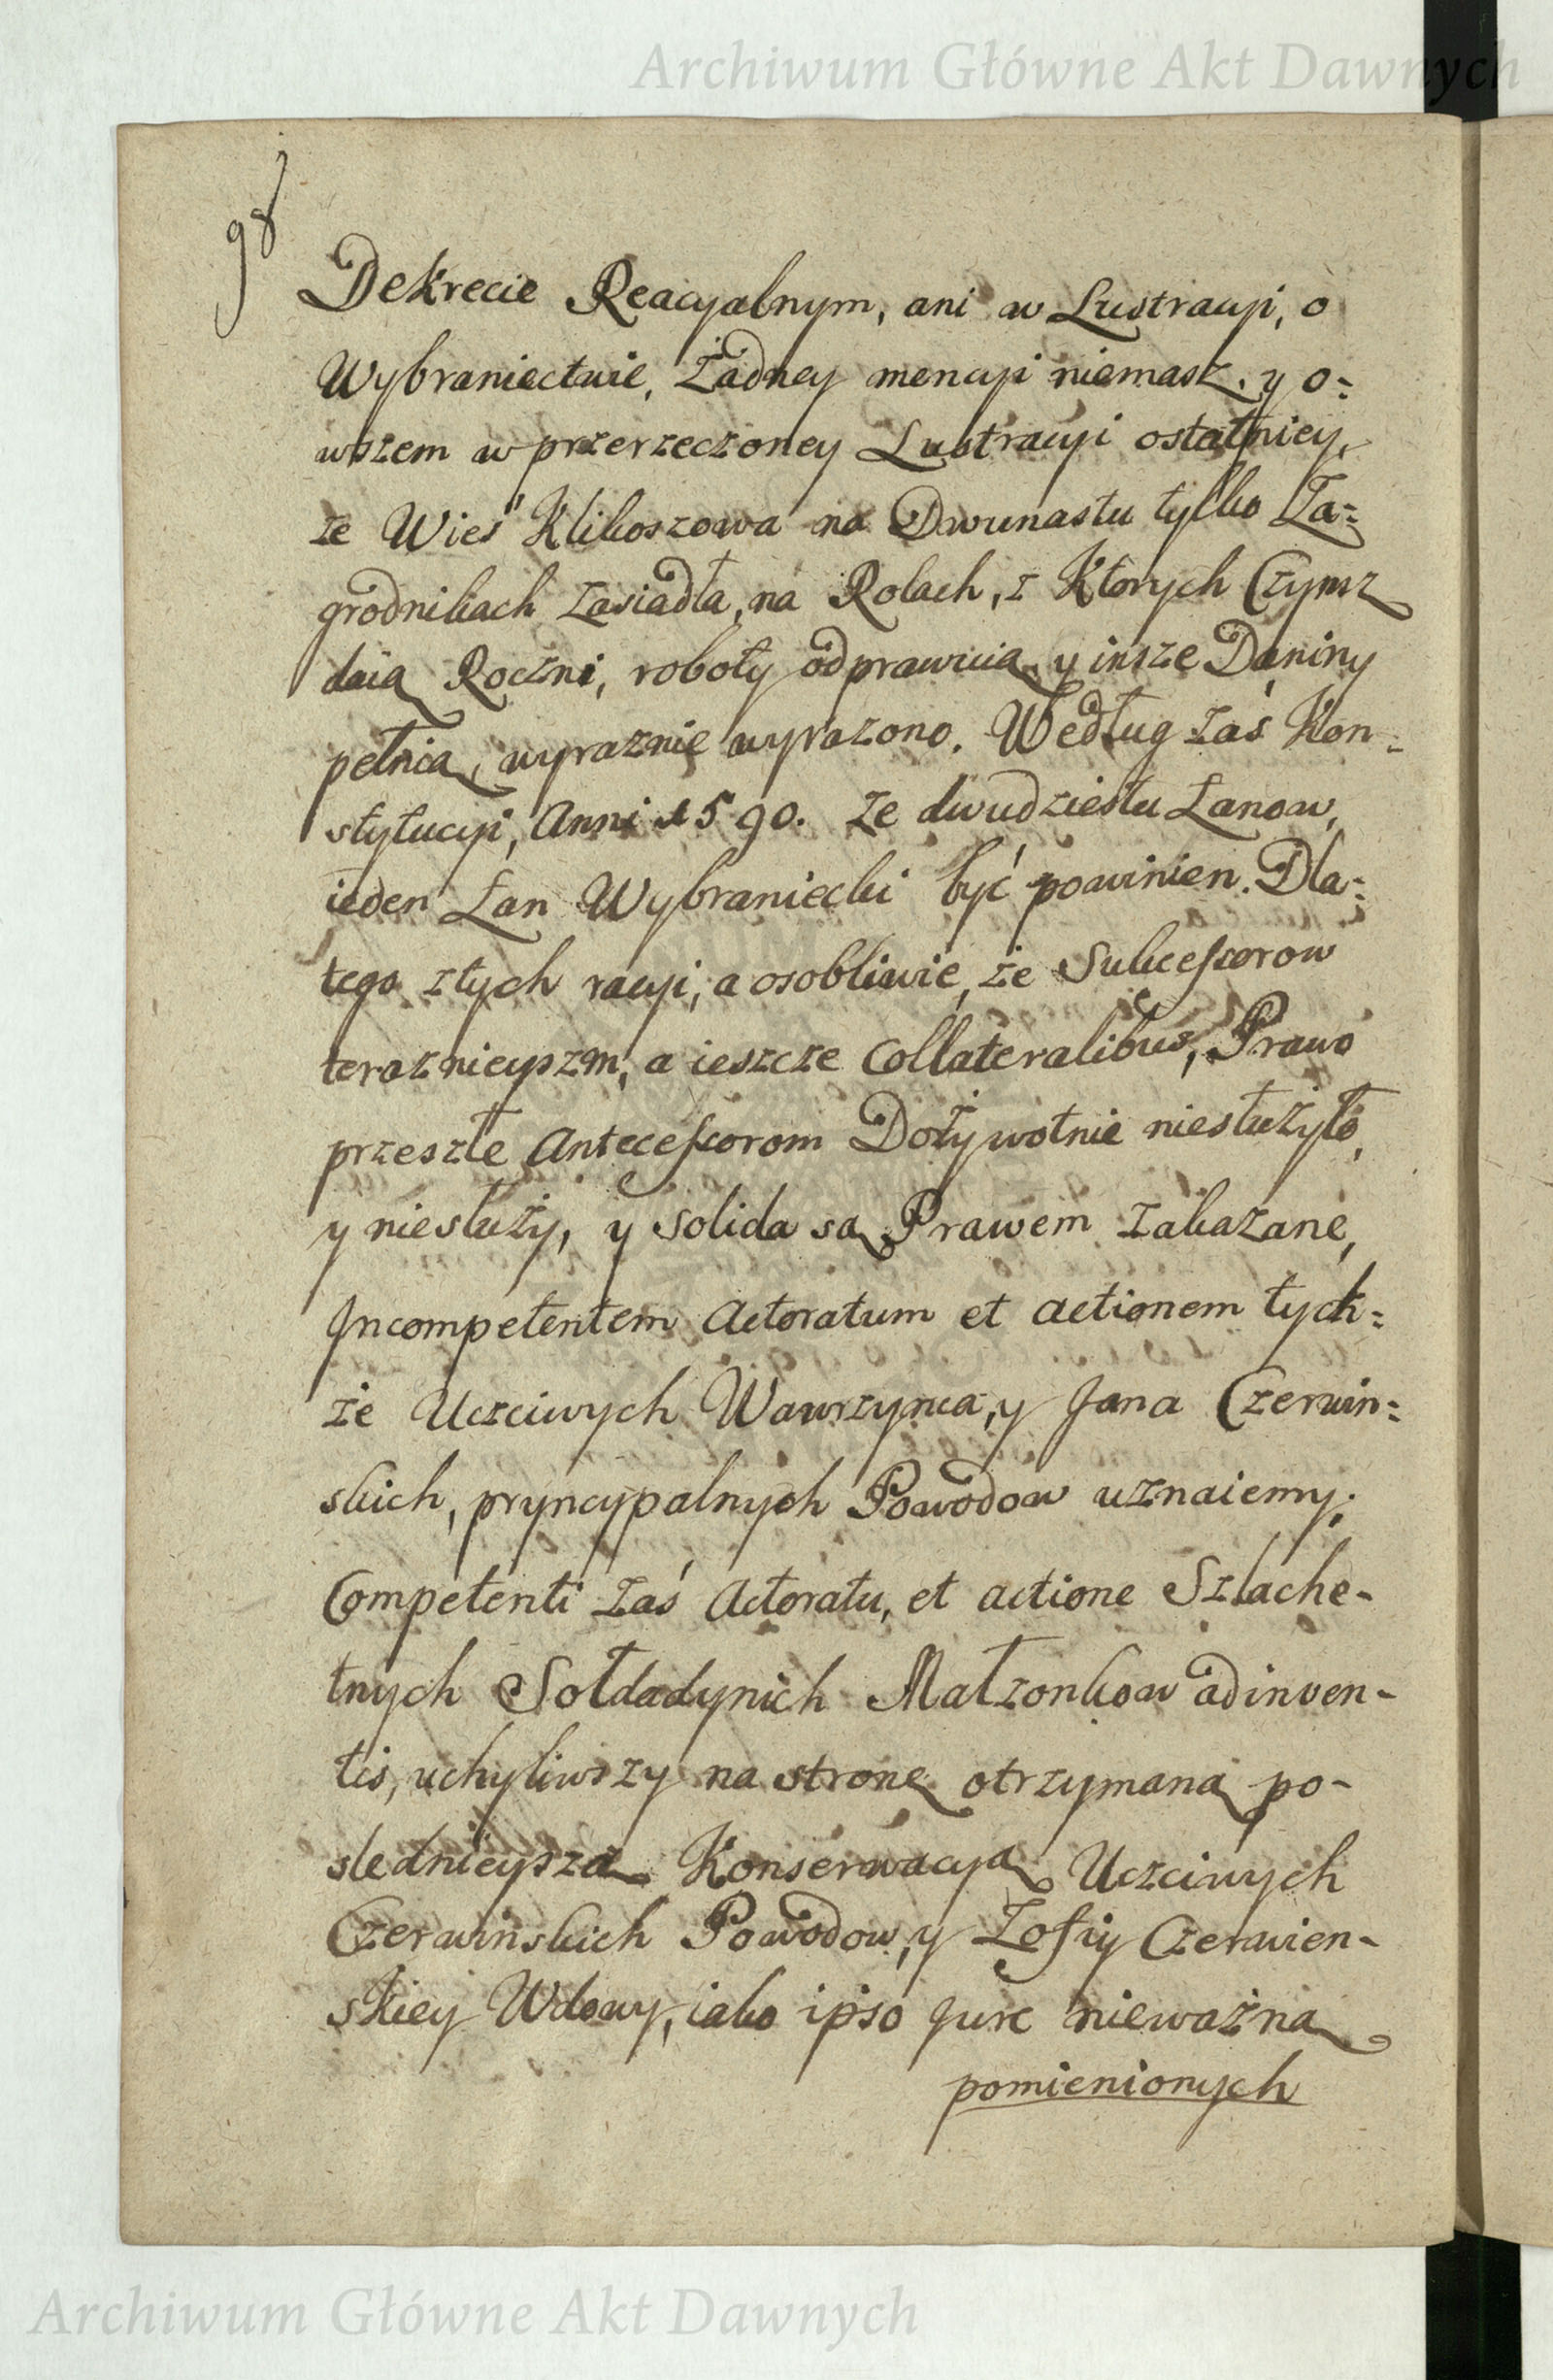 Archiwum Główne Akt Dawnych
98
Dekrecie Reacyalnym, ani w Lustracyi, o
Wybraniectwie, Żadney mencyi niemasz, y o=
wszem w przerzeczoney Lustracyi ostatniey,
że Wieś Klikoszowa na Dwunastu tylko Za=
grodnikach zasiadła, na Rolach, z Ktorych Czynsz
daią Roczni, roboty odprawuią, y insze Daniny
pełnią, wyraznie wyrażono. Według zaś Kon=
stytucyi, Anni 1590. Ze dwudziestu Łanow,
ieden Łan Wybraniecki być powinien. Dla=
tego z tych racyi, a osobliwie, że Sukceſsorow
teraznieyszm, a ieszcze Collateralibus, Prawo
przeszłe Anteceſsorom Dożywotnie niesłużyło,
y niesłuży, y Solida są Prawem zakazane,
Incompetentem Actoratum et actionem tych=
że Uczciwych Wawrzynca, y Jana Czerwin=
skich, pryncypalnych Powodow uznaiemy;
Competenti zaś Actoratu, et actione Szlache-
tnych Sołdadynich Małzonkow adinven-
tis, uchyliwszy na stronę otrzymaną po-
slednieyszą Konserwacyą Uczciwych
Czerwinskich Powodow, y Zofiy Czerwien-
skiey Wdowy, iako ipso Jure nieważną
pomienionych
Archiwum Główne Akt Dawnych